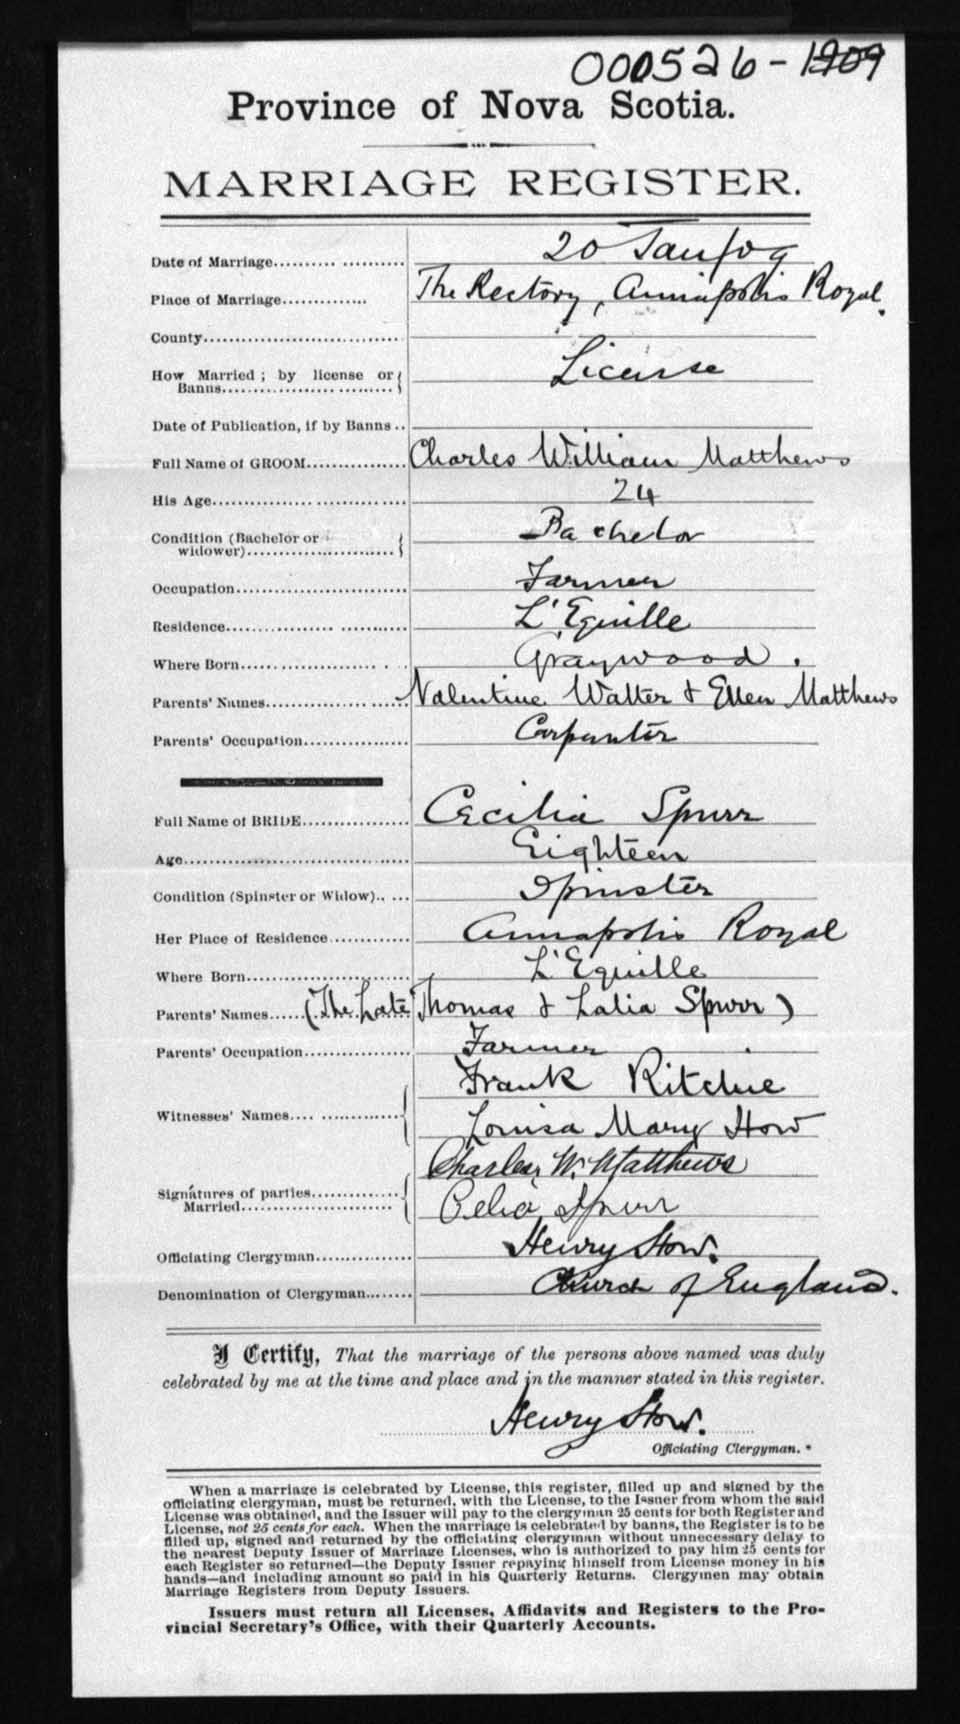 000526-1909
Province of Nova Scotia.
MARRIAGE REGISTER.
Date of Marriage.................... 20 Jan/09
Place of Marriage.............. The Rectory, Annapolis Royal.
County................................
How Married; by license or License
Banns................................
Date of Publication, if by Banns ..
Full Name of GROOM................. Charles William Matthews
His Age................................ 24
Condition (Bachelor or Bachelor
widower)........................
Occupation............................ Farmer
Residence............................ L'Equille
Where Born........................ Graywood.
Parents' Names........................ Valentine Walter & Ellen Matthews
Parents' Occupation................. Carpenter
Full Name of BRIDE................. Cecilia Spurr
Age.................................... Eighteen
Condition (Spinster or Widow).. ... Spinster
Her Place of Residence............. Annapolis Royal
Where Born........................... L'Equille
Parents' Names...... (The Late Thomas & Lalia Spurr)
Parents' Occupation................. Farmer
Frank Ritchie
Witnesses' Names.... ..............
Louisa Mary How
Charles W. Matthews
Signatures of parties..............
Married........................
Celia Spurr
Officiating Clergyman............... Henry How.
Denomination of Clergyman........ Church of England.
I Certify, That the marriage of the persons above named was duly
celebrated by me at the time and place and in the manner stated in this register.
Henry How.
Officiating Clergyman.
When a marriage is celebrated by License, this register, filled up and signed by the
officiating clergyman, must be returned, with the License, to the Issuer from whom the said
License was obtained, and the Issuer will pay to the clergyman 25 cents for both Register and
License, not 25 cents for each. When the marriage is celebrated by banns, the Register is to be
filled up, signed and returned by the officiating clergyman without unnecessary delay to
the nearest Deputy Issuer of Marriage Licenses, who is authorized to pay him 25 cents for
each Register so returned—the Deputy Issuer repaying himself from License money in his
hands—and including amount so paid in his Quarterly Returns. Clergymen may obtain
Marriage Registers from Deputy Issuers.
Issuers must return all Licenses, Affidavits and Registers to the Pro-
vincial Secretary's Office, with their Quarterly Accounts.